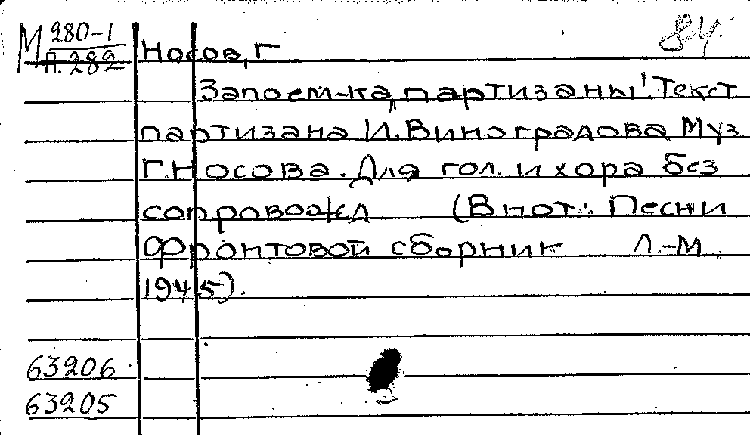 М 280-1 84.
П. 282 Носов, Г
Запоем-ка, партизаны! Текст
партизана И. Виноградова Муз
Г. Носова. Для гол. и хора без
сопровожд (В нот.: Песни
Фронтовой сборник Л.-М.
1945).
63206
63205